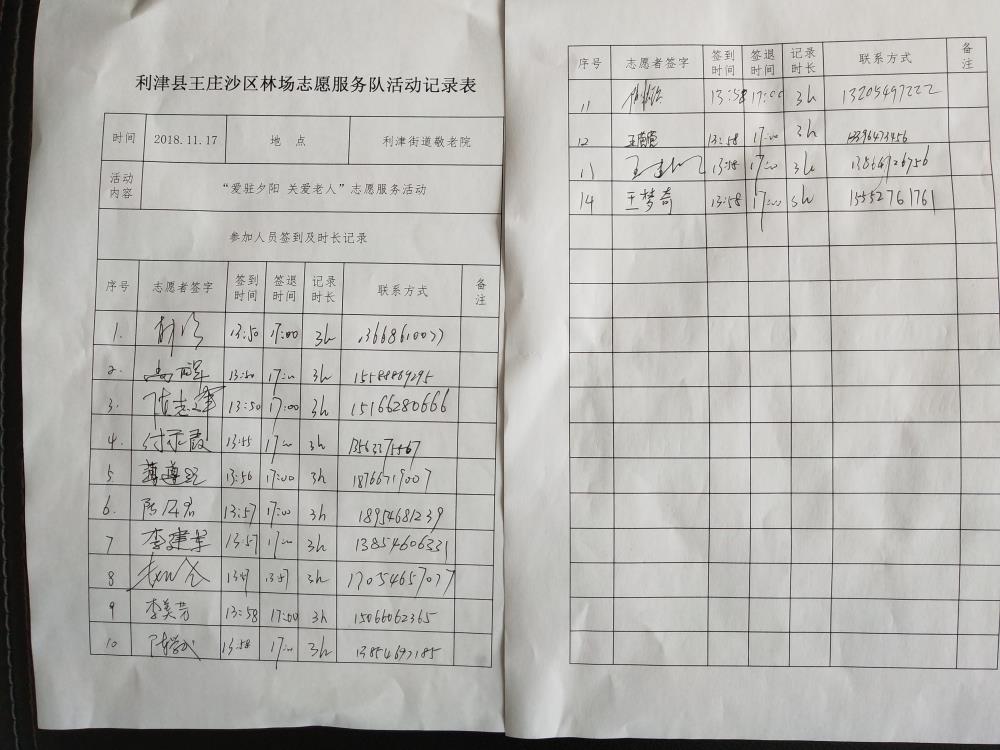 利津县王庄沙区林场志愿服务队活动记录表
时间 2018.11.17 地 点 利津街道敬老院
活动内容 “爱驻夕阳 关爱老人”志愿服务活动
参加人员签到及时长记录
序号 志愿者签字 签到时间 签退时间 记录时长 联系方式 备注
1. 13:50 17:00 3h 13668610077
2. 13:50 17:00 3h 15588869295
3. 陈志军 13:50 17:00 3h 15166280666
4. 付荣霞 13:55 17:00 3h
5 薄遵经 13:56 17:00 3h 18766719007
6. 13:57 17:00 3h 18954681239
7 李建军 13:57 17:00 3h 13854606331
8 13:57 13:57 3h 17054657077
9 李美芳 13:58 17:00 3h 15066062365
10 13:58 17:00 3h
序号 志愿者签字 签到时间 签退时间 记录时长 联系方式 备注
11 13:58 17:00 3h 13205497222
12 13:58 17:00 3h
13 13:58 17:00 3h
14 王梦奇 13:58 17:00 3h 15552761761